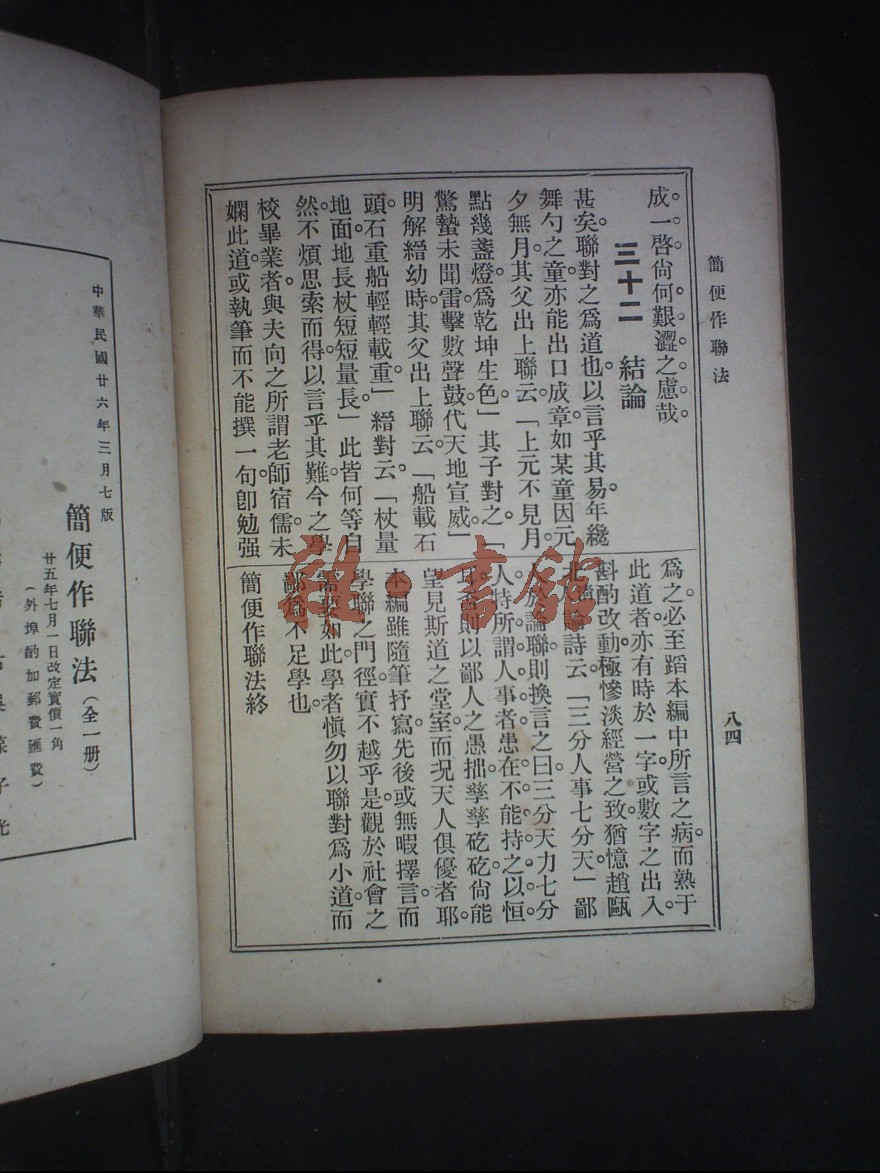 簡便作聯法
八四
成一啓尙何艱澀之慮哉。
三十二　結論
甚矣聯對之爲道也。以言乎其易。年纔
舞勺之童亦能出口成章。如某童因元
夕無月。其父出上聯云。「上元不見月
點幾盞燈。爲乾坤生色」其子對之「
驚蟄未聞雷。擊數聲鼓。代天地宣威」
明解縉幼時其父出上聯云。「船載石
頭。石重船輕輕載重。」縉對云。「杖量
地面。地長杖短短量長」此皆何等自
然。不煩思索而得。以言乎其難。今之學
校畢業者與夫向之所謂老師宿儒。未
嫻此道。或執筆而不能撰一句。卽勉强
爲之。必至蹈本編中所言之病。而熟于
此道者。亦有時於一字或數字之出入。
斟酌改動。極慘淡經營之致。猶憶趙甌
北論詩云。「三分人事七分天」鄙
人於論聯。則換言之曰。三分天力七分
人持。所謂人事者。患在不能持之以恒
則以鄙人之愚拙。孳孳矻矻。尙能
望見斯道之堂室。而況天人俱優者耶。
本編雖隨筆抒寫。先後或無暇擇言。而
學聯之門徑。實不越乎是。觀於社會之
需要如此。學者愼勿以聯對爲小道而
鄙爲不足學也。
簡便作聯法終
中華民國廿六年三月七版
簡便作聯法（全一册）
廿五年七月一日改定實價一角
（外埠酌加郵費匯費）
子光
啟·書館